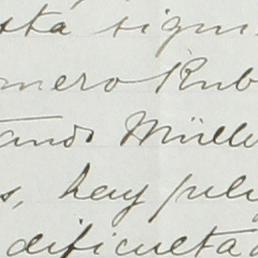 sta sigui
mero Rub
ando Müller
s, hay pelig
dificultad